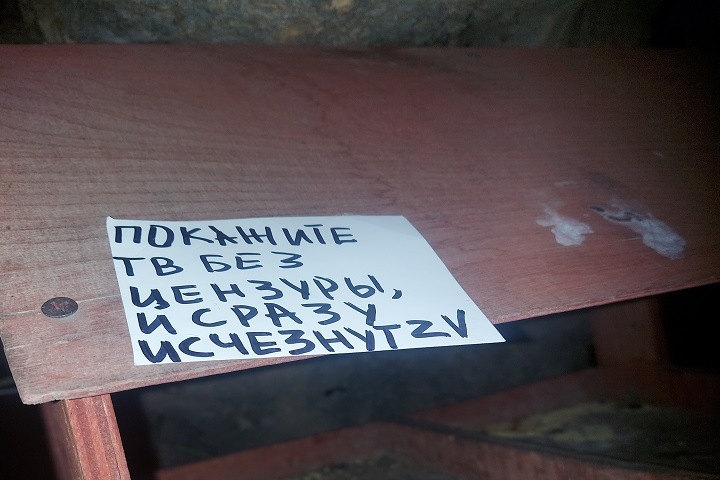 ПОКАЖИТЕ
ТВ БЕЗ
ЦЕНЗУРЫ,
И СРАЗУ
ИСЧЕЗНУТ ZV